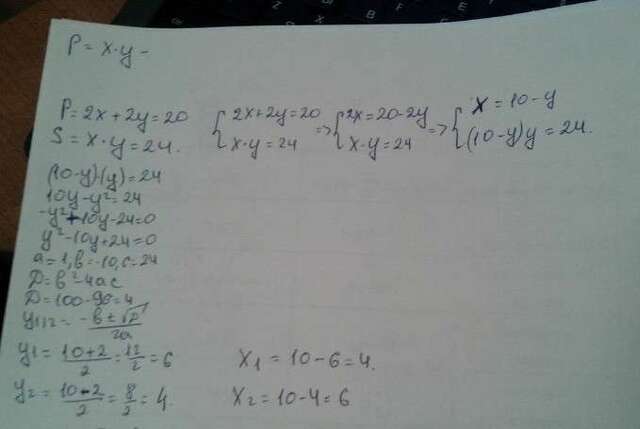 P = x·y -
P = 2x + 2y = 20 { 2x + 2y = 20 => { 2x = 20 - 2y => { x = 10 - y
S = x·y = 24. x·y = 24 x·y = 24 (10-y)y = 24.
(10-y)·(y) = 24
10y - y² = 24
-y² + 10y - 24 = 0
y² - 10y + 24 = 0
a = 1, b = -10, c = 24
D = b² - 4ac
D = 100 - 96 = 4
y1,2 = (-b ± √D)/2a
y1 = (10+2)/2 = 12/2 = 6 x1 = 10 - 6 = 4.
y2 = (10-2)/2 = 8/2 = 4. x2 = 10 - 4 = 6